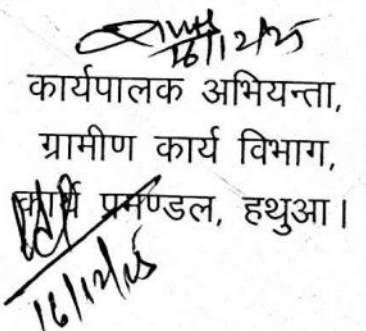 16/12/25
कार्यपालक अभियन्ता,
ग्रामीण कार्य विभाग,
कार्य प्रमण्डल, हथुआ।
16/12/25